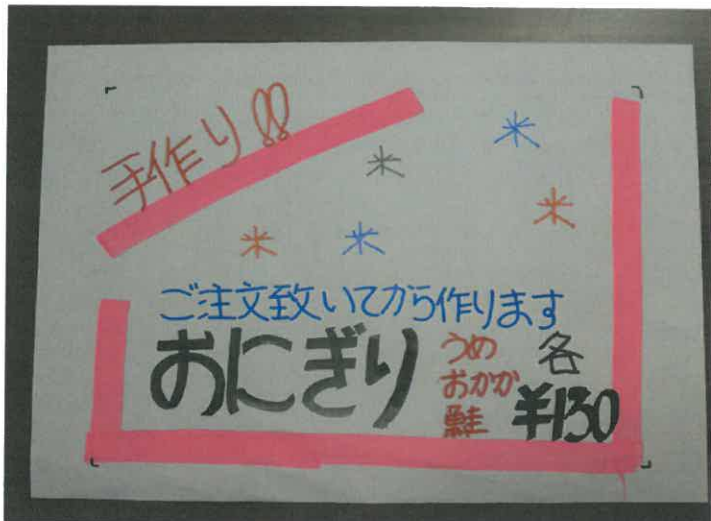 手作り!!
ご注文致いてから作ります
おにぎり
うめ
おかか
鮭
各
¥130